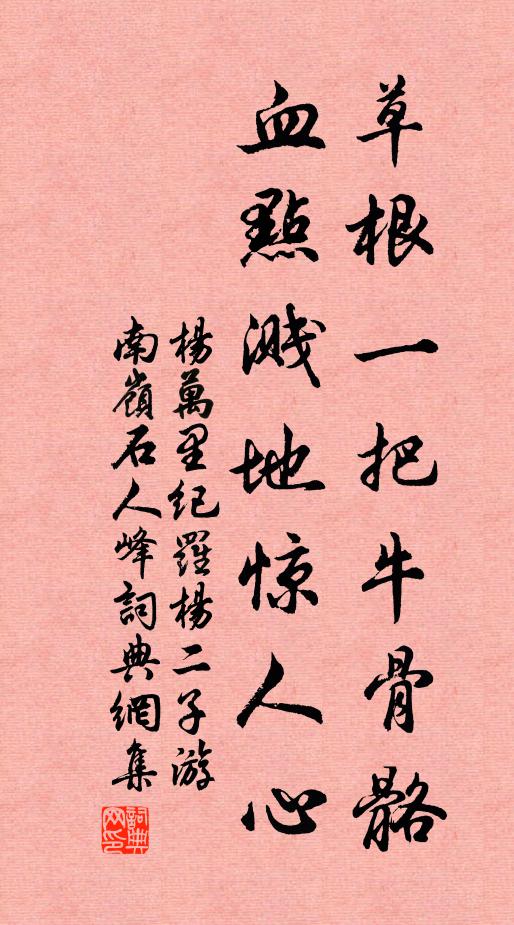 草根一把牛骨骼
血點溅地惊人心
楊萬里纪羅楊二子游
南嶺石人峰詞典網集
詞典
网印